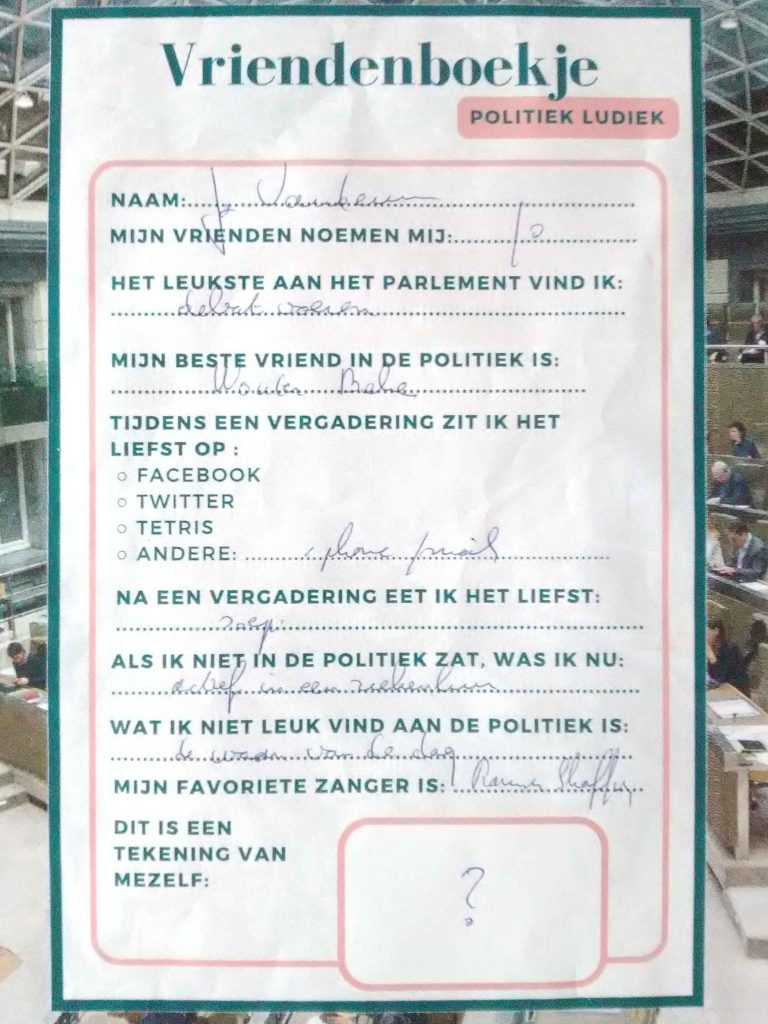 Vriendenboekje
POLITIEK LUDIEK
NAAM: Jo Vandeurzen
MIJN VRIENDEN NOEMEN MIJ: Jo
HET LEUKSTE AAN HET PARLEMENT VIND IK:
debat voeren
MIJN BESTE VRIEND IN DE POLITIEK IS:
Wouter Beke
TIJDENS EEN VERGADERING ZIT IK HET
LIEFST OP :
○ FACEBOOK
○ TWITTER
○ TETRIS
○ ANDERE: iphone mail
NA EEN VERGADERING EET IK HET LIEFST:
soep
ALS IK NIET IN DE POLITIEK ZAT, WAS IK NU:
actief in een ziekenhuis
WAT IK NIET LEUK VIND AAN DE POLITIEK IS:
de waan van de dag
MIJN FAVORIETE ZANGER IS: Ramses Shaffy
DIT IS EEN
TEKENING VAN
MEZELF:
?